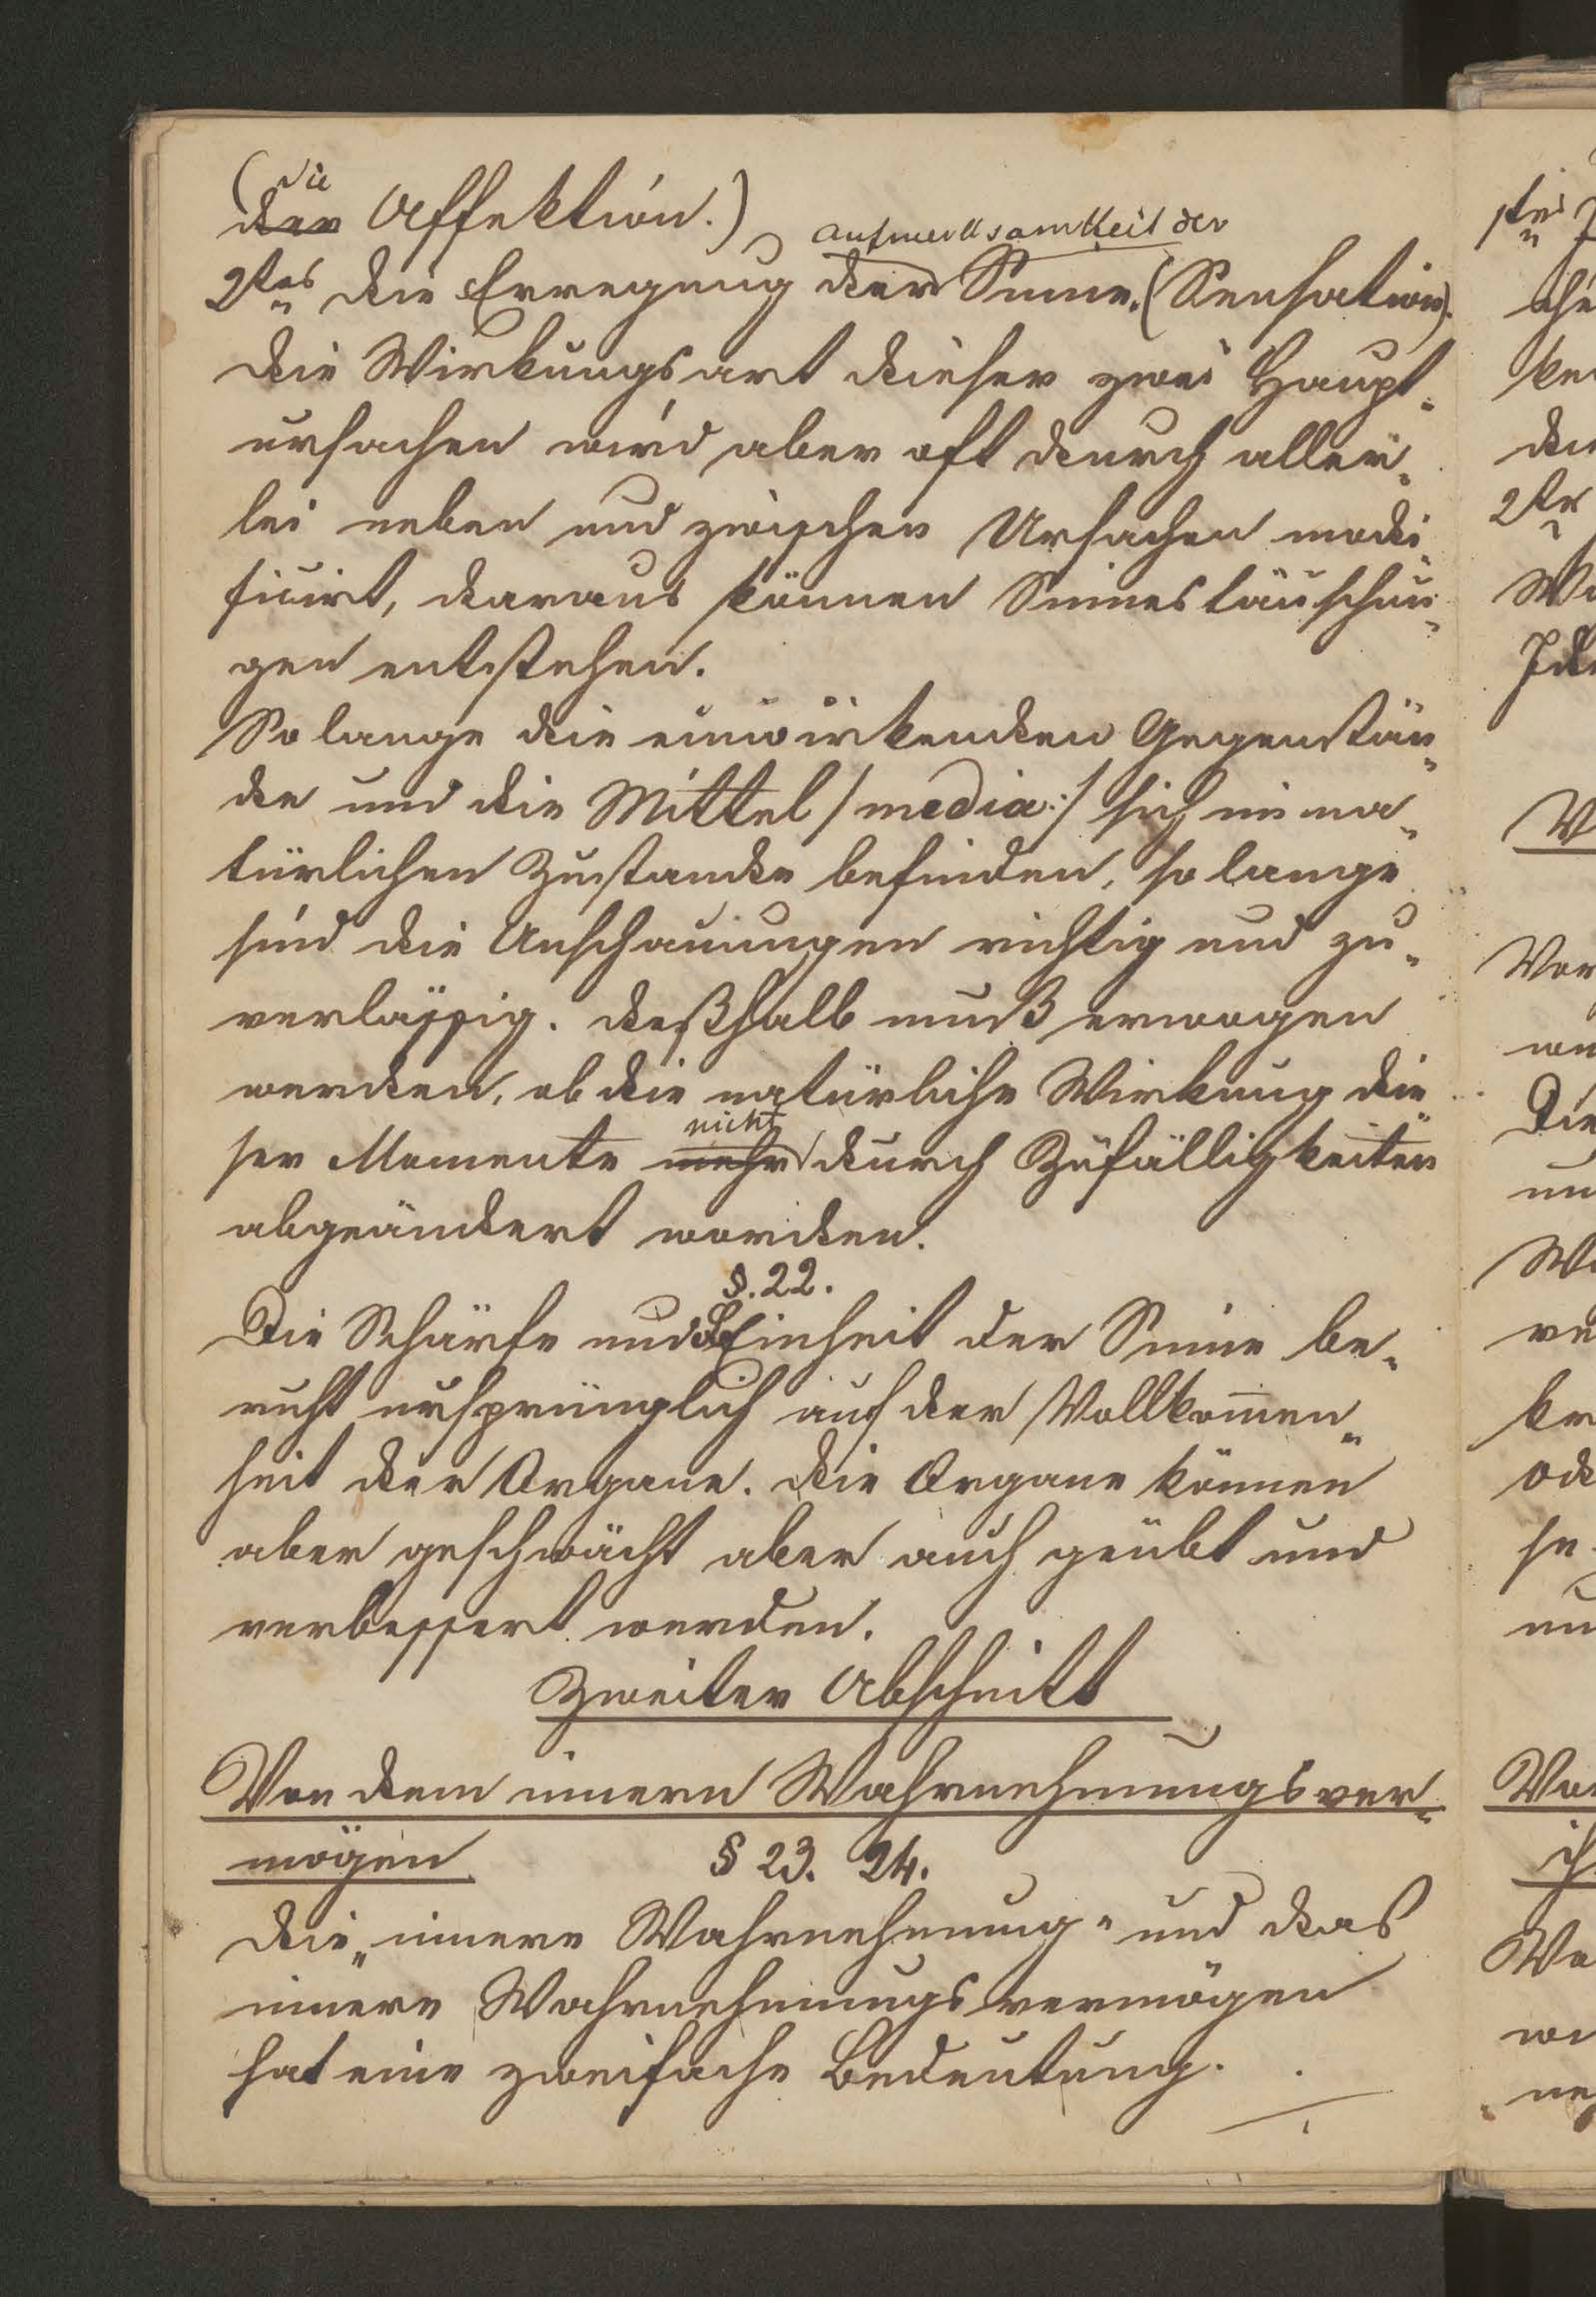 (die
der Affektion.)
Aufmerksamkeit der
2tes die Erregung der Sinne. (Sensation).
die Wirkungsart dieser zwei Haupt„
ursachen wird aber oft durch aller„
lei neben und zwischen Ursachen modi„
ficirt, daraus können Sinnestäuschun„
gen entstehen.
So lange die einwirkenden Gegenstän„
de und die Mittel /media:/ sich im na„
türlichen Zustande befinden, so lange
sind die Anschauungen richtig und zu„
verlässig. deßhalb muß erwogen
werden, ob die natürliche Wirkung die„
nicht
ser Momente mehr durch Zufälligkeiten
abgeändert worden.
§. 22.
Die Schärfe und Feinheit der Sinne be„
ruht ursprünglich auf der Vollkom̄en„
heit der Organe. die Organe können
aber geschwächt aber auch geübt und
verbessert werden.
Zweiter Abschnitt
Von dem innern Wahrnehmungsver„
mögen
§ 23. 24.
die „innere Wahrnehmung" und das
innere Wahrnehmungsvermögen
hat eine zweifache Bedeutung.